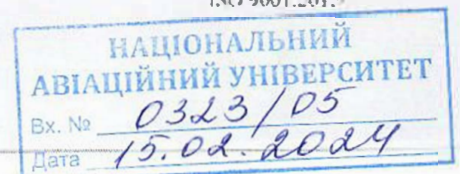 НАЦІОНАЛЬНИЙ
АВІАЦІЙНИЙ УНІВЕРСИТЕТ
Вх. № 0323/05
Дата 15.02.2024